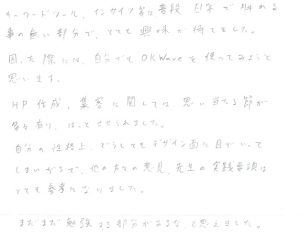 キーワードツール、インサイト等は普段 自分で触れる
事の無い部分で、とても興味が持てました。
困った際には、自分でも OKWave を使ってみようと
思います。
HP作成、集客に関しては 思い当たる節が
多々有り、はっとさせられました。
自分の性格上、どうしてもデザイン面に目がいって
しまいがちで、他の方の意見、先生の実践事項は
とても参考になりました。
まだまだ勉強する部分があるな、と思えました。